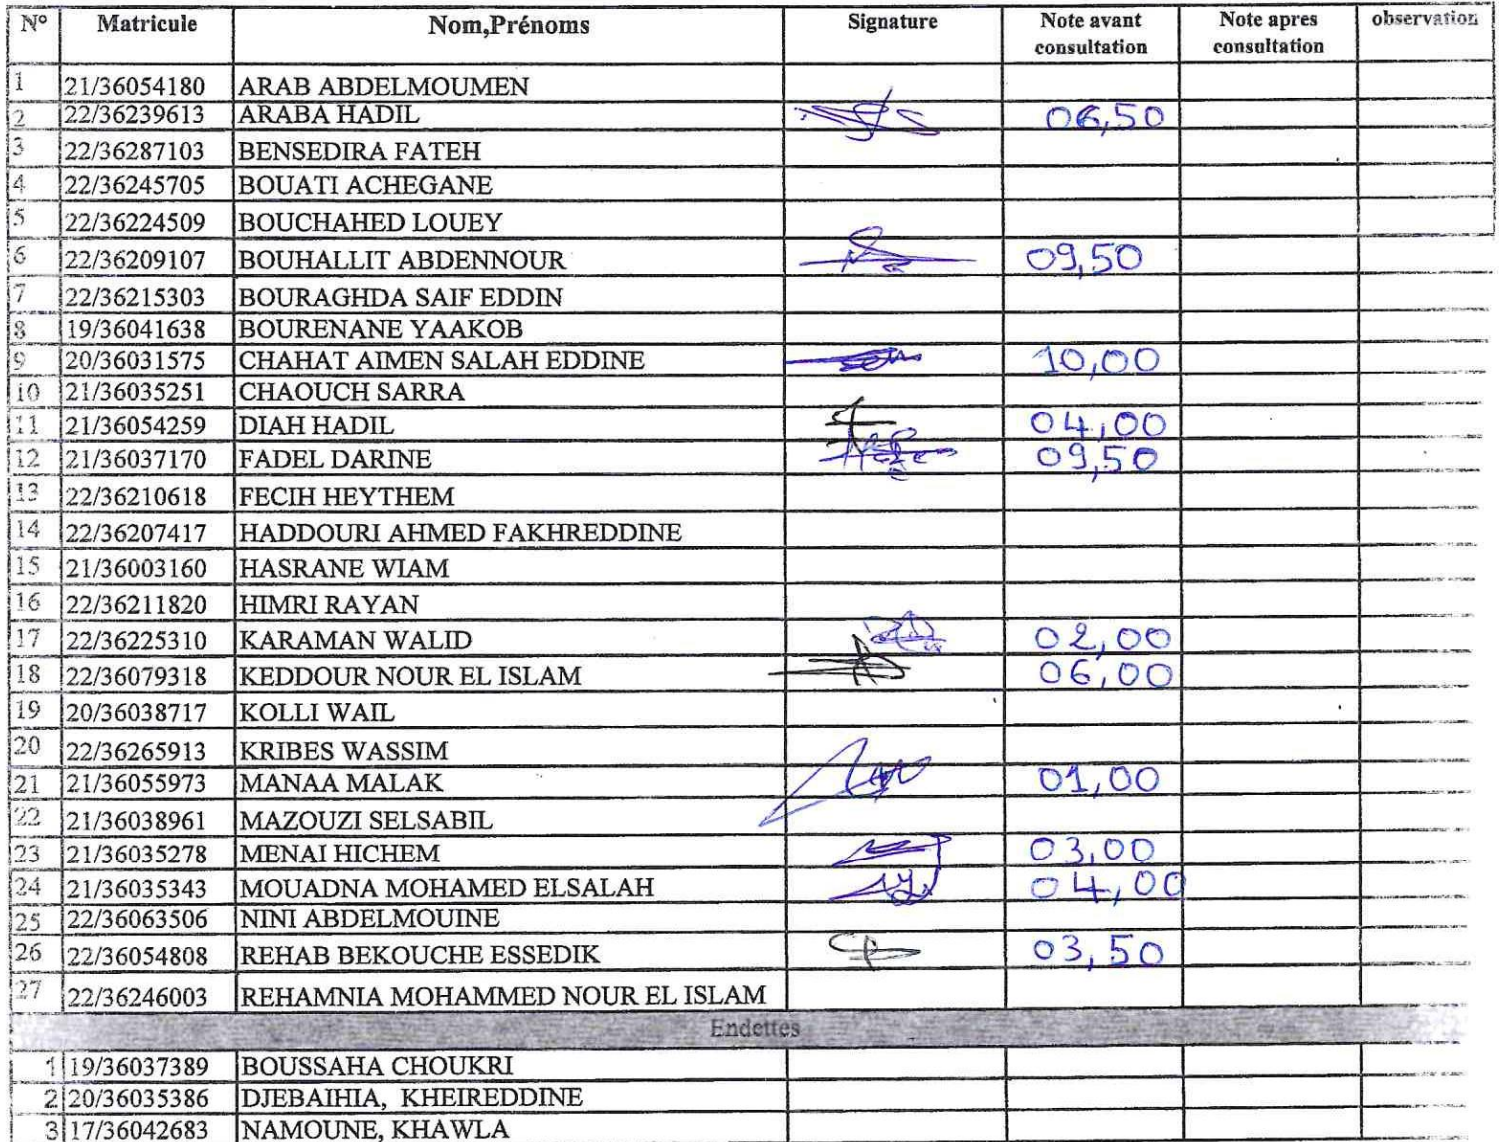 N° Matricule Nom,Prénoms Signature Note avant consultation Note apres consultation observation
1 21/36054180 ARAB ABDELMOUMEN
2 22/36239613 ARABA HADIL 06,50
3 22/36287103 BENSEDIRA FATEH
4 22/36245705 BOUATI ACHEGANE
5 22/36224509 BOUCHAHED LOUEY
6 22/36209107 BOUHALLIT ABDENNOUR 09,50
7 22/36215303 BOURAGHDA SAIF EDDIN
8 19/36041638 BOURENANE YAAKOB
9 20/36031575 CHAHAT AIMEN SALAH EDDINE 10,00
10 21/36035251 CHAOUCH SARRA
11 21/36054259 DIAH HADIL 04,00
12 21/36037170 FADEL DARINE 09,50
13 22/36210618 FECIH HEYTHEM
14 22/36207417 HADDOURI AHMED FAKHREDDINE
15 21/36003160 HASRANE WIAM
16 22/36211820 HIMRI RAYAN
17 22/36225310 KARAMAN WALID 02,00
18 22/36079318 KEDDOUR NOUR EL ISLAM 06,00
19 20/36038717 KOLLI WAIL
20 22/36265913 KRIBES WASSIM
21 21/36055973 MANAA MALAK 01,00
22 21/36038961 MAZOUZI SELSABIL
23 21/36035278 MENAI HICHEM 03,00
24 21/36035343 MOUADNA MOHAMED ELSALAH 04,00
25 22/36063506 NINI ABDELMOUINE
26 22/36054808 REHAB BEKOUCHE ESSEDIK 03,50
27 22/36246003 REHAMNIA MOHAMMED NOUR EL ISLAM
Endettes
1 19/36037389 BOUSSAHA CHOUKRI
2 20/36035386 DJEBAIHIA, KHEIREDDINE
3 17/36042683 NAMOUNE, KHAWLA